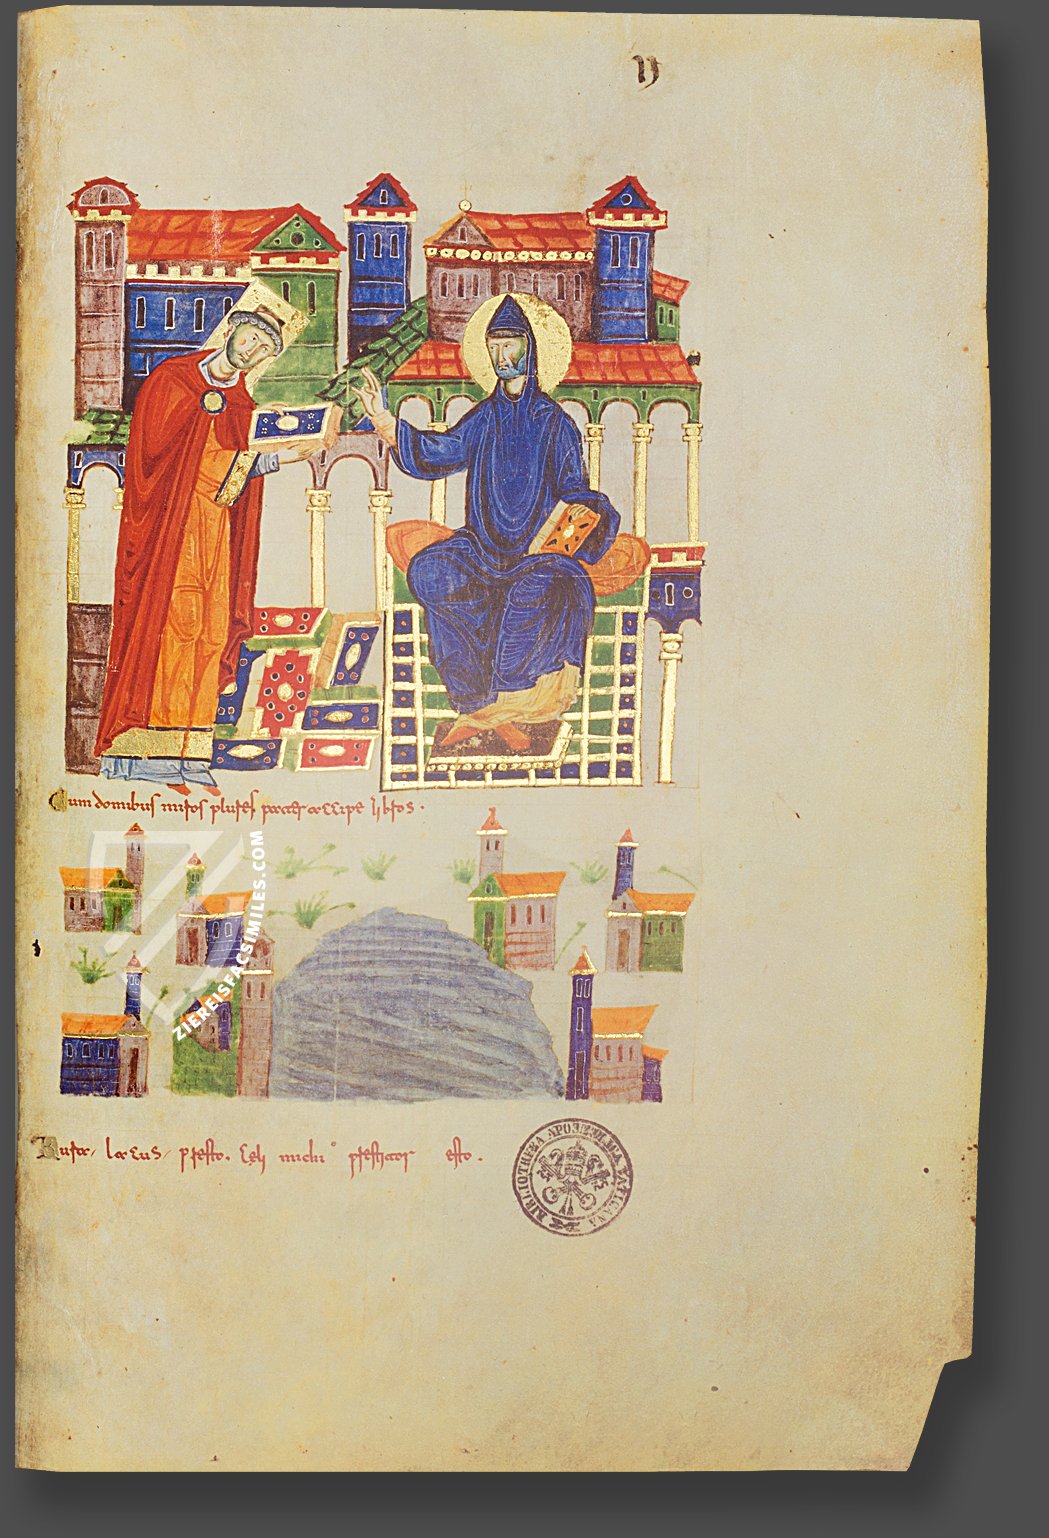 Cum domibus miros plures pater accipe libros.
ZIEREISFACSIMILES.COM
Rura, lacus, presto. cęli michi prestitor esto.
BIBLIOTHECA APOSTOLICA VATICANA